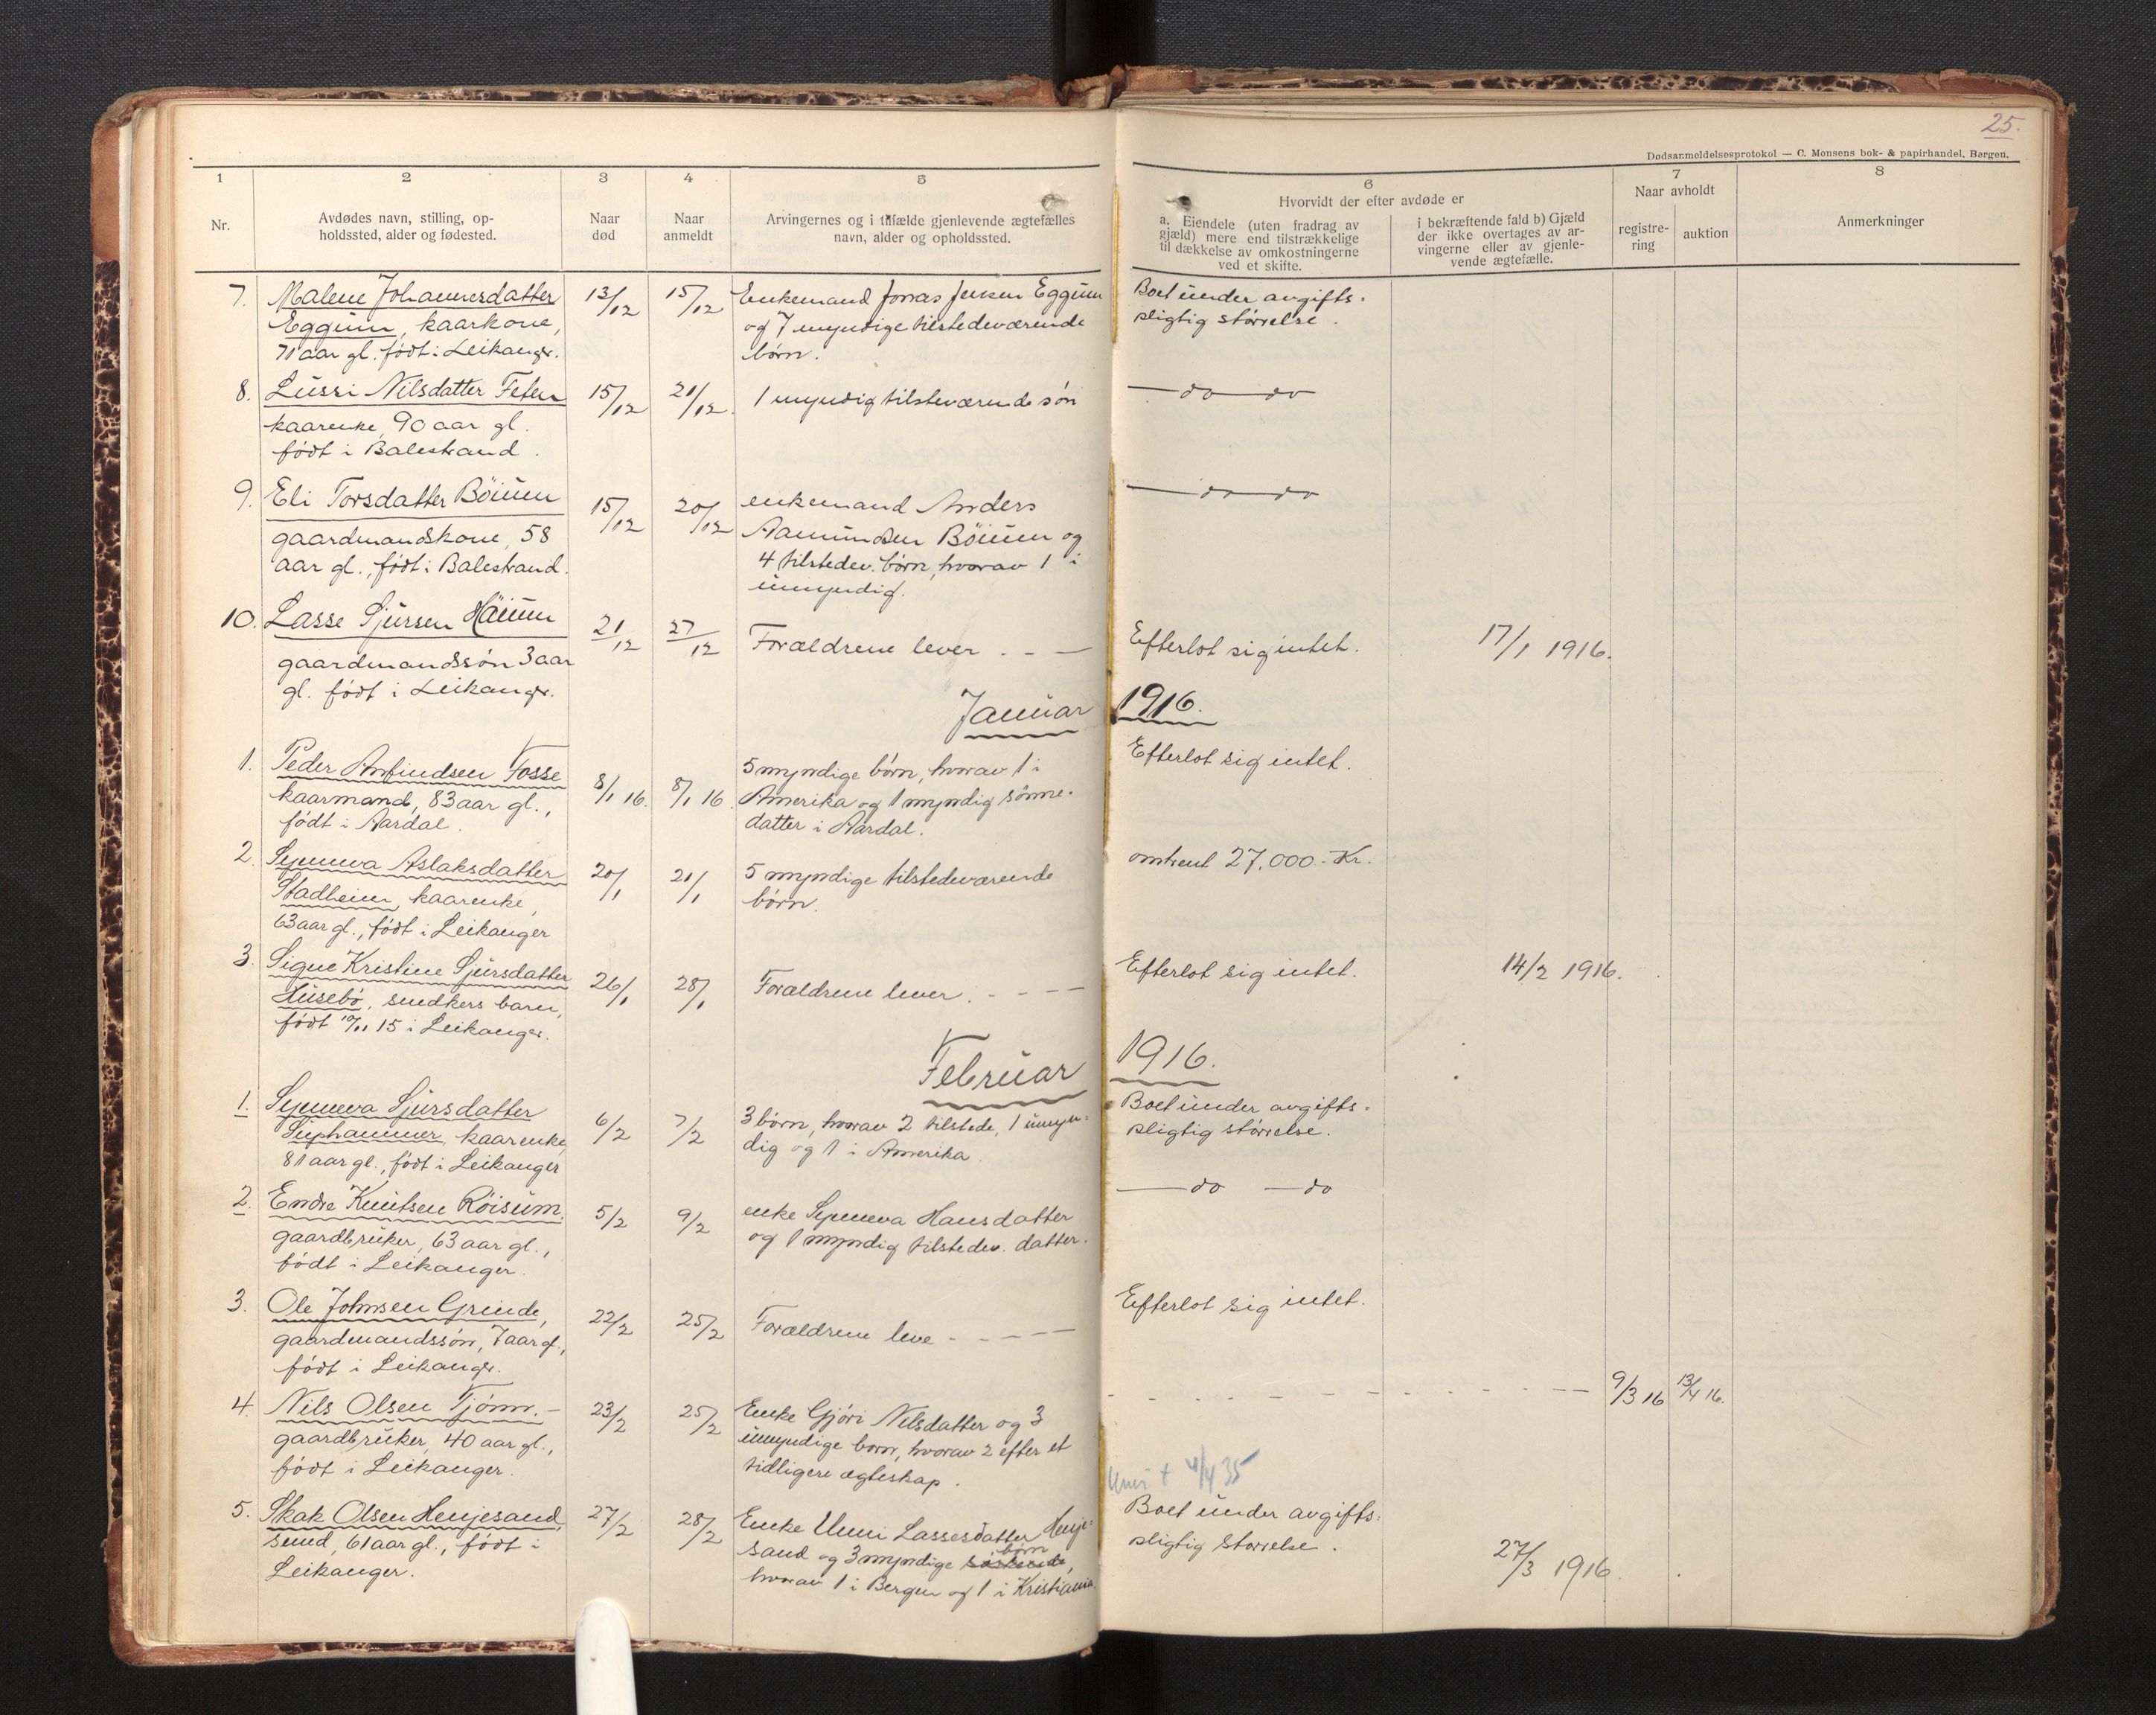 25.
Dødsanmeldelsesprotokol — C. Monsens bok- & papirhandel, Bergen.
1 2 3 4 5
Nr.
Avdødes navn, stilling, op-
holdssted, alder og fødested.
Naar
død
Naar
anmeldt
Arvingernes og i tilfælde gjenlevende ægtefælles
navn, alder og opholdssted.
6 7 8
Hvorvidt der efter avdøde er
a. Eiendele (uten fradrag av
gjæld) mere end tilstrækkelige
til dækkelse av omkostningerne
ved et skifte.
i bekræftende fald b) Gjæld
der ikke overtages av ar-
vingerne eller av gjenle-
vende ægtefælle.
Naar avholdt
registre-
ring
auktion
Anmerkninger
7. Malene Johannesdatter
Eggum, kaarkone,
71 aar gl. født i Leikanger.
13/12 15/12
Enkemand Jonas Jensen Eggum
og 7 myndige tilstedeværende
børn.
Boet under avgifts-
pligtig størrelse.
8. Lussi Nilsdatter Feten
kaarenke, 90 aar gl.
født i Balestrand.
15/12 21/12.
1 myndig tilsteværende søn
— do — do
9. Eli Torsdatter Böium
gaardmandskone, 58
aar gl., født i Balestrand.
15/12 20/12
enkemand Anders
Aamundsen Böium og
4 tilstedev. børn, hvorav 1
umyndig.
— do — do
10. Lasse Sjursen Häium
gaardmandssøn 3 aar
gl. født i Leikanger.
21/12 27/12
Forældrene lever . - —
Efterlot sig intet.
17/1 1916.
Januar 1916.
1. Peder Anfindsen Fosse
kaarmand, 83 aar gl.,
født i Aardal.
8/1 16. 8/1 16.
5 myndige børn, hvorav 1 i
Amerika og 1 myndig sønne-
datter i Aardal.
Efterlot sig intet.
2. Synneva Aslaksdatter
Stadheim, kaarenke,
63 aar gl., født i Leikanger
20/1 21/1
5 myndige tilstedeværende
børn.
omtrent 27.000 - Kr.
3. Signe Kristine Sjursdatter
Husebø, smedkers barn,
født 10/11 15 i Leikanger.
26/1 28/1
Forældrene lever. - - - —
Efterlot sig intet.
14/2 1916.
Februar 1916.
1. Synneva Sjursdatter
kaarenke,
81 aar gl., født i Leikanger
6/2 7/2
3 børn, hvorav 2 tilstede, 1 umyn-
dig og 1 i Amerika.
Boet under avgifts-
pligtig størrelse.
2. Endre Knutsen Röisum,
gaardbruker, 63 aar gl.,
født i Leikanger.
5/2 9/2
enke Synneva Hansdatter
og 1 myndig tilstedev. datter.
— do — do
3. Ole Johnsen Grinde,
gaardmandssøn, 7 aar gl.,
født i Leikanger.
22/2 25/2
Forældrene leve - - - — —
Efterlot sig intet.
4. Nils Olsen Tjönn. -
gaardbruker, 40 aar gl.,
født i Leikanger.
23/2 25/2
Enke Gjöri Nilsdatter og 3
umyndige børn, hvorav 2 efter et
tidligere ægteskap.
9/3 16 13/4 16.
† 4/4 35
5. Skak Olsen Henjesand,
smed, 61 aar gl., født i
Leikanger.
27/2 28/2
Enke Unni Lassesdatter Henje-
sand og 3 myndige søskende børn,
hvorav 1 i Bergen og 1 i Kristiania.
Boet under avgifts-
pligtig størrelse.
27/3 1916.